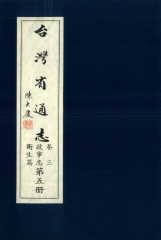 台灣省通志
卷三
政事志
衞生篇
第五册
陳大慶